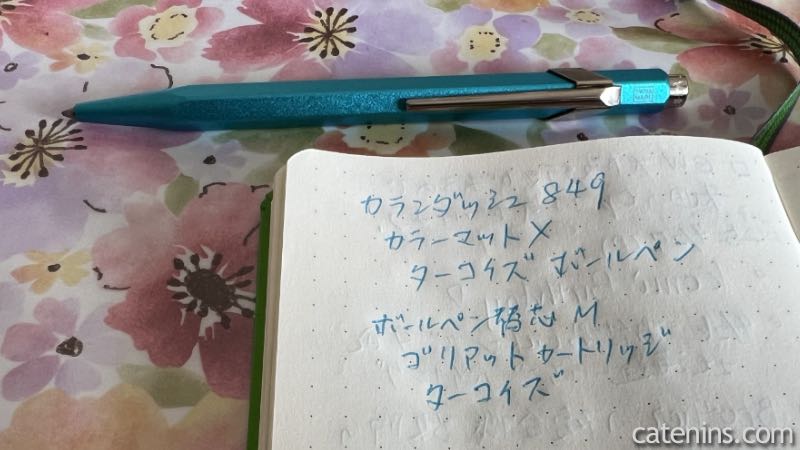 カランダッシュ 849
カラーマットX
ターコイズ ボールペン
ボールペン替芯 M
ゴリアット カートリッジ
ターコイズ
catenins.com